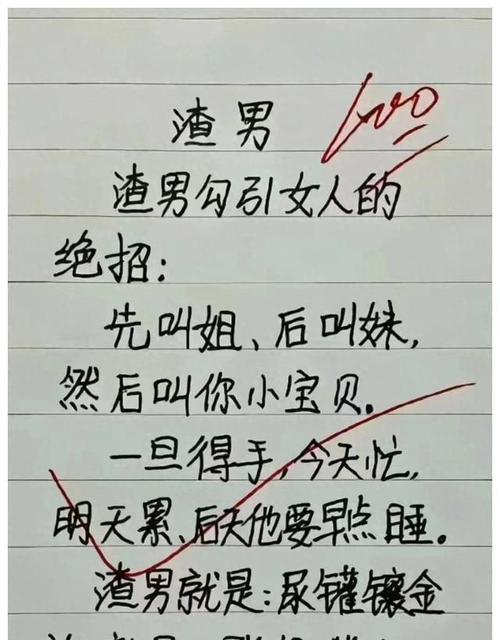 渣男
100
渣男勾引女人的
绝招:
先叫姐、后叫妹,
然后叫你小宝贝.
一旦得手,今天忙,
明天累、后天他要早点睡。
渣男就是:尿罐镶金